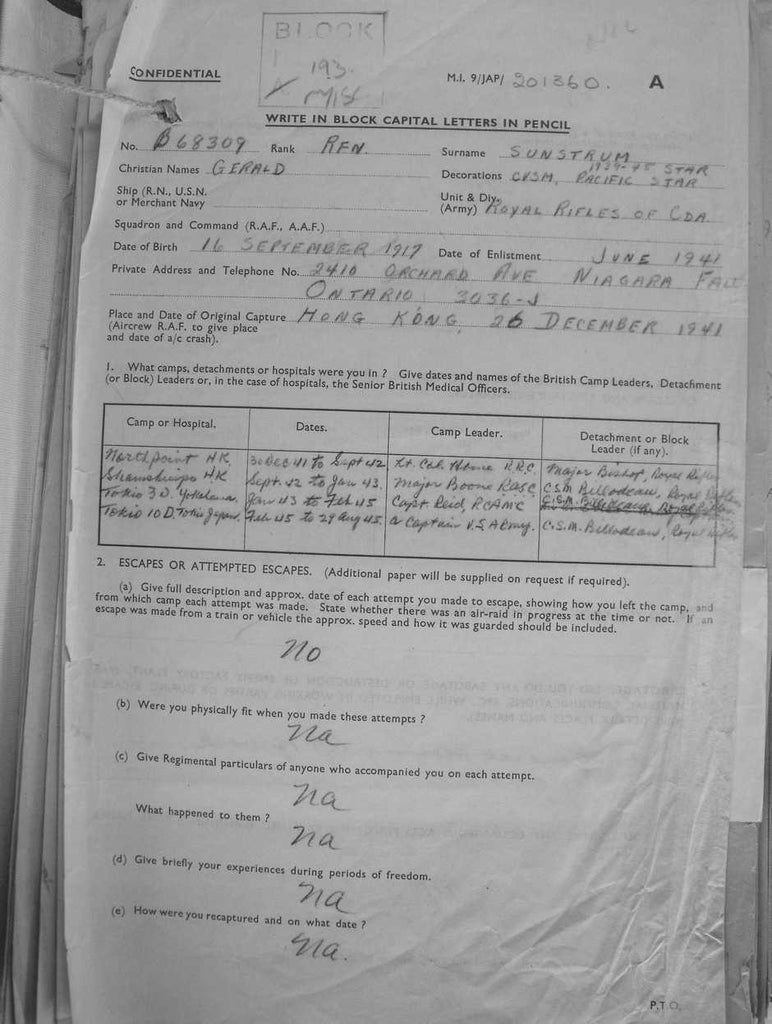 BLOCK
193.
CONFIDENTIAL
M.I. 9/JAP/ 201360. A
WRITE IN BLOCK CAPITAL LETTERS IN PENCIL
No. B68309 Rank RFN. Surname SUNSTRUM
Christian Names GERALD Decorations CVSM, 1939-45 STAR PACIFIC STAR
Ship (R.N., U.S.N. or Merchant Navy
Unit & Div. (Army) ROYAL RIFLES OF CDA.
Squadron and Command (R.A.F., A.A.F.)
Date of Birth 16 SEPTEMBER 1917 Date of Enlistment JUNE 1941
Private Address and Telephone No. 2410 ORCHARD AVE NIAGARA FALL
ONTARIO 3036-J
Place and Date of Original Capture HONG KONG, 26 DECEMBER 1941
(Aircrew R.A.F. to give place
and date of a/c crash).
1. What camps, detachments or hospitals were you in ? Give dates and names of the British Camp Leaders, Detachment
(or Block) Leaders or, in the case of hospitals, the Senior British Medical Officers.
Camp or Hospital. Dates. Camp Leader. Detachment or Block Leader (if any).
North Point HK. 30 Dec 41 to Sept 42 Lt. Col. Home R.R.C. Major Bishop, Royal Rifles
Shamshuipo HK Sept. 42 to Jan 43. Major Boone RASC C.S.M. Billodeau, Royal Rifles
Tokio 3D. Yokohama Jan 43 to Feb 45 Capt. Reid, RCAMC
Tokio 10D. Tokio Japan. Feb 45 to 29 Aug 45. a Captain U.S. Army. C.S.M. Billodeau, Royal Rifles
2. ESCAPES OR ATTEMPTED ESCAPES. (Additional paper will be supplied on request if required).
(a) Give full description and approx. date of each attempt you made to escape, showing how you left the camp, and
from which camp each attempt was made. State whether there was an air-raid in progress at the time or not. If an
escape was made from a train or vehicle the approx. speed and how it was guarded should be included.
No
(b) Were you physically fit when you made these attempts ?
Na
(c) Give Regimental particulars of anyone who accompanied you on each attempt.
Na
What happened to them ?
Na
(d) Give briefly your experiences during periods of freedom.
Na
(e) How were you recaptured and on what date ?
Na.
P.T.O.